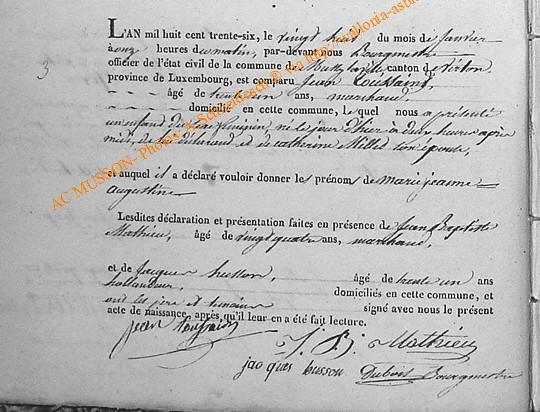 L'AN mil huit cent trente-six, le vingt huit du mois de janvier
à onze heures du matin, par-devant nous Bourgmestre
officier de l'état civil de la commune de canton de Virton,
3
province de Luxembourg, est comparu Jean Toussaint,
âgé de trente un ans, marchand,
domicilié en cette commune, Lequel nous a présenté
un enfant du sexe féminin, né le jour d'hier à heures après
midi, de lui déclarant, et de catherine Millet son épouse,
et auquel il a déclaré vouloir donner les prénoms de marie jeanne
augustine
Lesdites déclaration et présentation faites en présence de Jean Baptiste
Mathieu, âgé de vingt quatre ans, marchand,
et de Jacques husson, âgé de trente un ans
domiciliés en cette commune, et
ont les père et témoins signé avec nous le présent
acte de naissance, après qu'il leur en a été fait lecture.
jean toussaint
J. B. Mathieu
jacques husson Dubois Bourgmestre
AC MUSSON- Photos: A Schleientesch © via http://wallonia-asbl